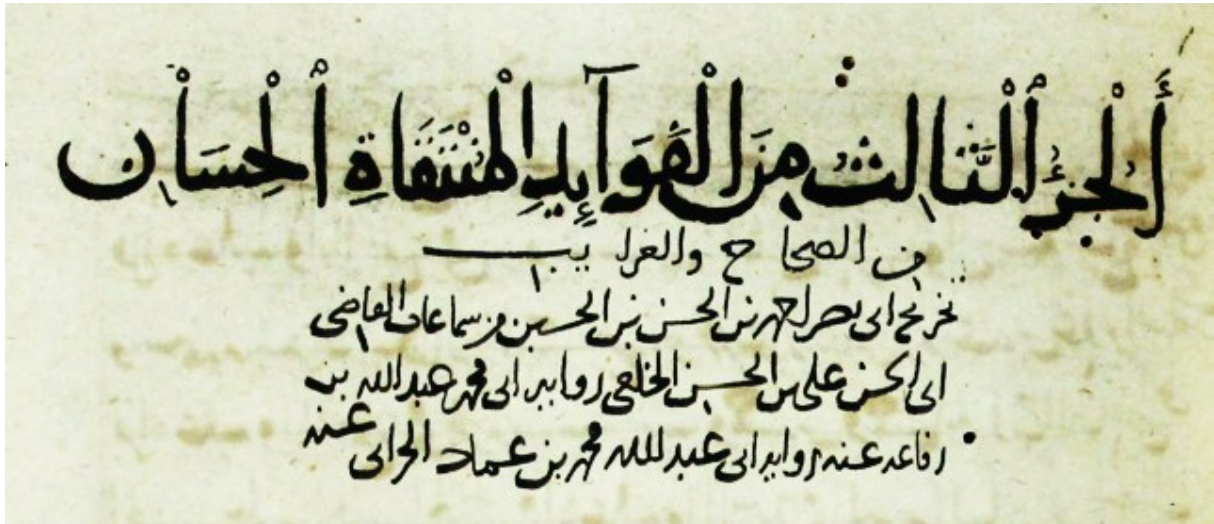 ٱلْجُزْءُ ٱلثَّالِثُ مِنَ الْفَوَآئِدِ الْمُنْتَقَاةِ ٱلْحِسَانِ
من الصحاح والغرايب
تخريج ابى نصر احمد بن الحسن بن الحسين من سماعات القاضى
ابى الحسن على بن الحسن الخلعى روايه ابى محمد عبد الله بن
رفاعه عنه روايه ابى عبد الله محمد بن عماد الحرانى عنه